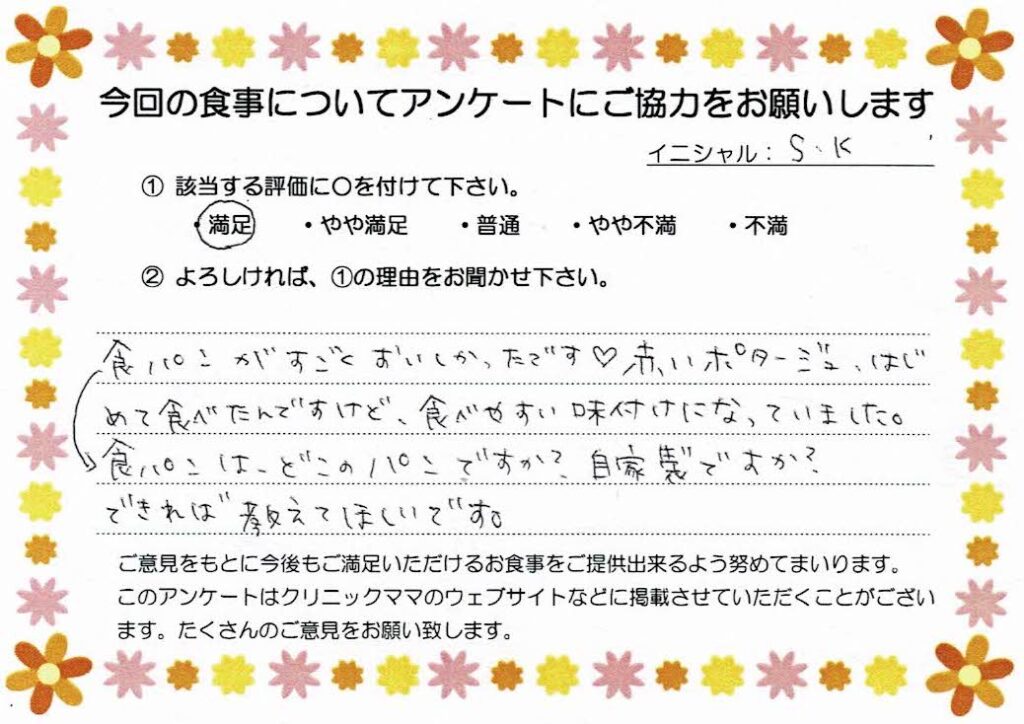 今回の食事についてアンケートにご協力をお願いします
イニシャル：S.K
① 該当する評価に〇を付けて下さい。
・満足 ・やや満足 ・普通 ・やや不満 ・不満
② よろしければ、①の理由をお聞かせ下さい。
食パンがすごくおいしかったです♡赤いポタージュ、はじ
めて食べたんですけど、食べやすい味付けになっていました。
食パンは、どこのパンですか？、自家製ですか？
できれば教えてほしいです。
ご意見をもとに今後もご満足いただけるお食事をご提供出来るよう努めてまいります。
このアンケートはクリニックママのウェブサイトなどに掲載させていただくことがござい
ます。たくさんのご意見をお願い致します。